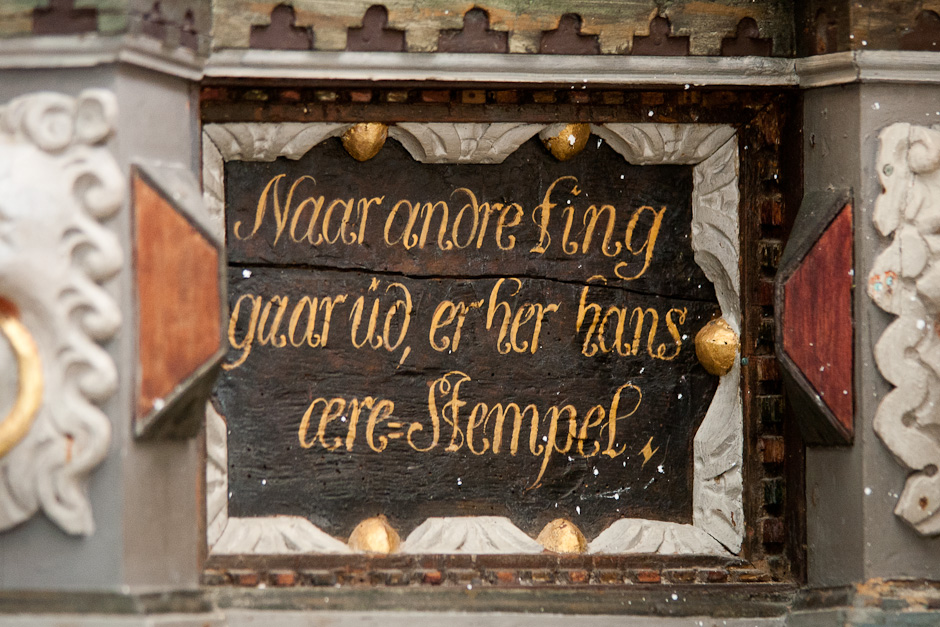 Naar andre ting
gaar üd, er her hans
ære=Stempel.